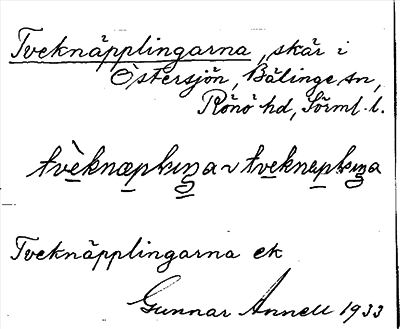 Tveknäpplingarna, skär i
Östersjön, Bälinge sn,
Rönö hd, Sörml. l.
Tveknäpplingarna ek
Gunnar Annell 1933